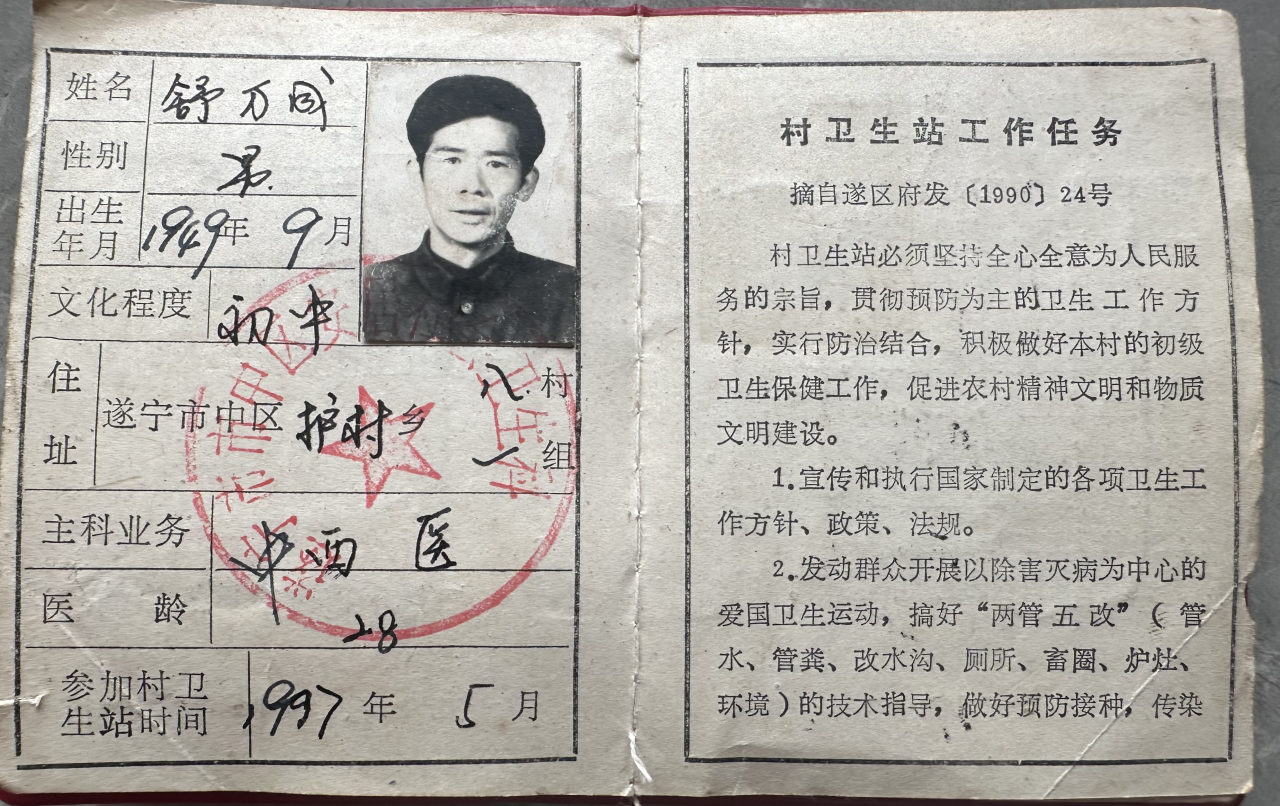 姓名 舒万成
性别 男
出生年月 1949年 9月
文化程度 初中
住址 遂宁市中区 护村乡 八村 一组
主科业务 中西医
医龄 28
参加村卫生站时间 1997年 5月
市中区
卫生科
村卫生站工作任务
摘自遂区府发〔1990〕24号
村卫生站必须坚持全心全意为人民服
务的宗旨，贯彻预防为主的卫生工作方
针，实行防治结合，积极做好本村的初级
卫生保健工作，促进农村精神文明和物质
文明建设。
1.宣传和执行国家制定的各项卫生工
作方针、政策、法规。
2.发动群众开展以除害灭病为中心的
爱国卫生运动，搞好“两管五改”（管
水、管粪、改水沟、厕所、畜圈、炉灶、
环境）的技术指导，做好预防接种，传染